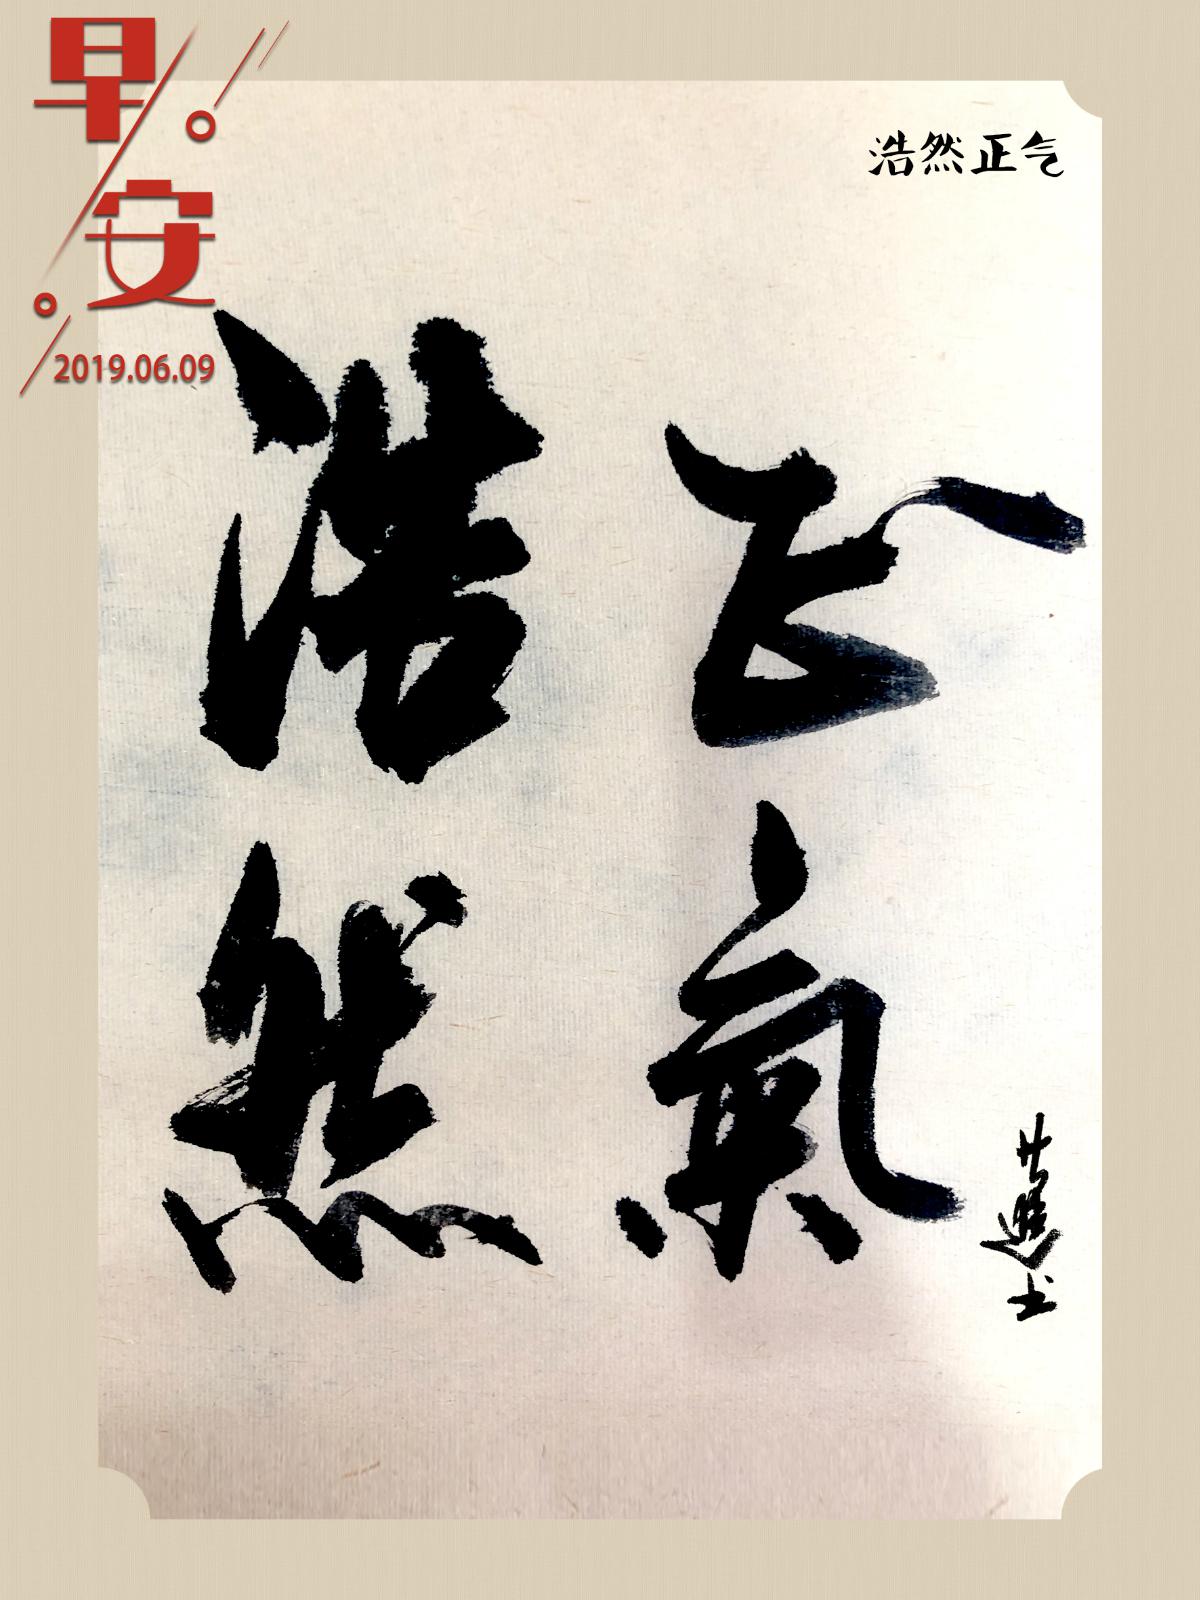 早安
2019.06.09
浩然正气
浩然
正氣
书